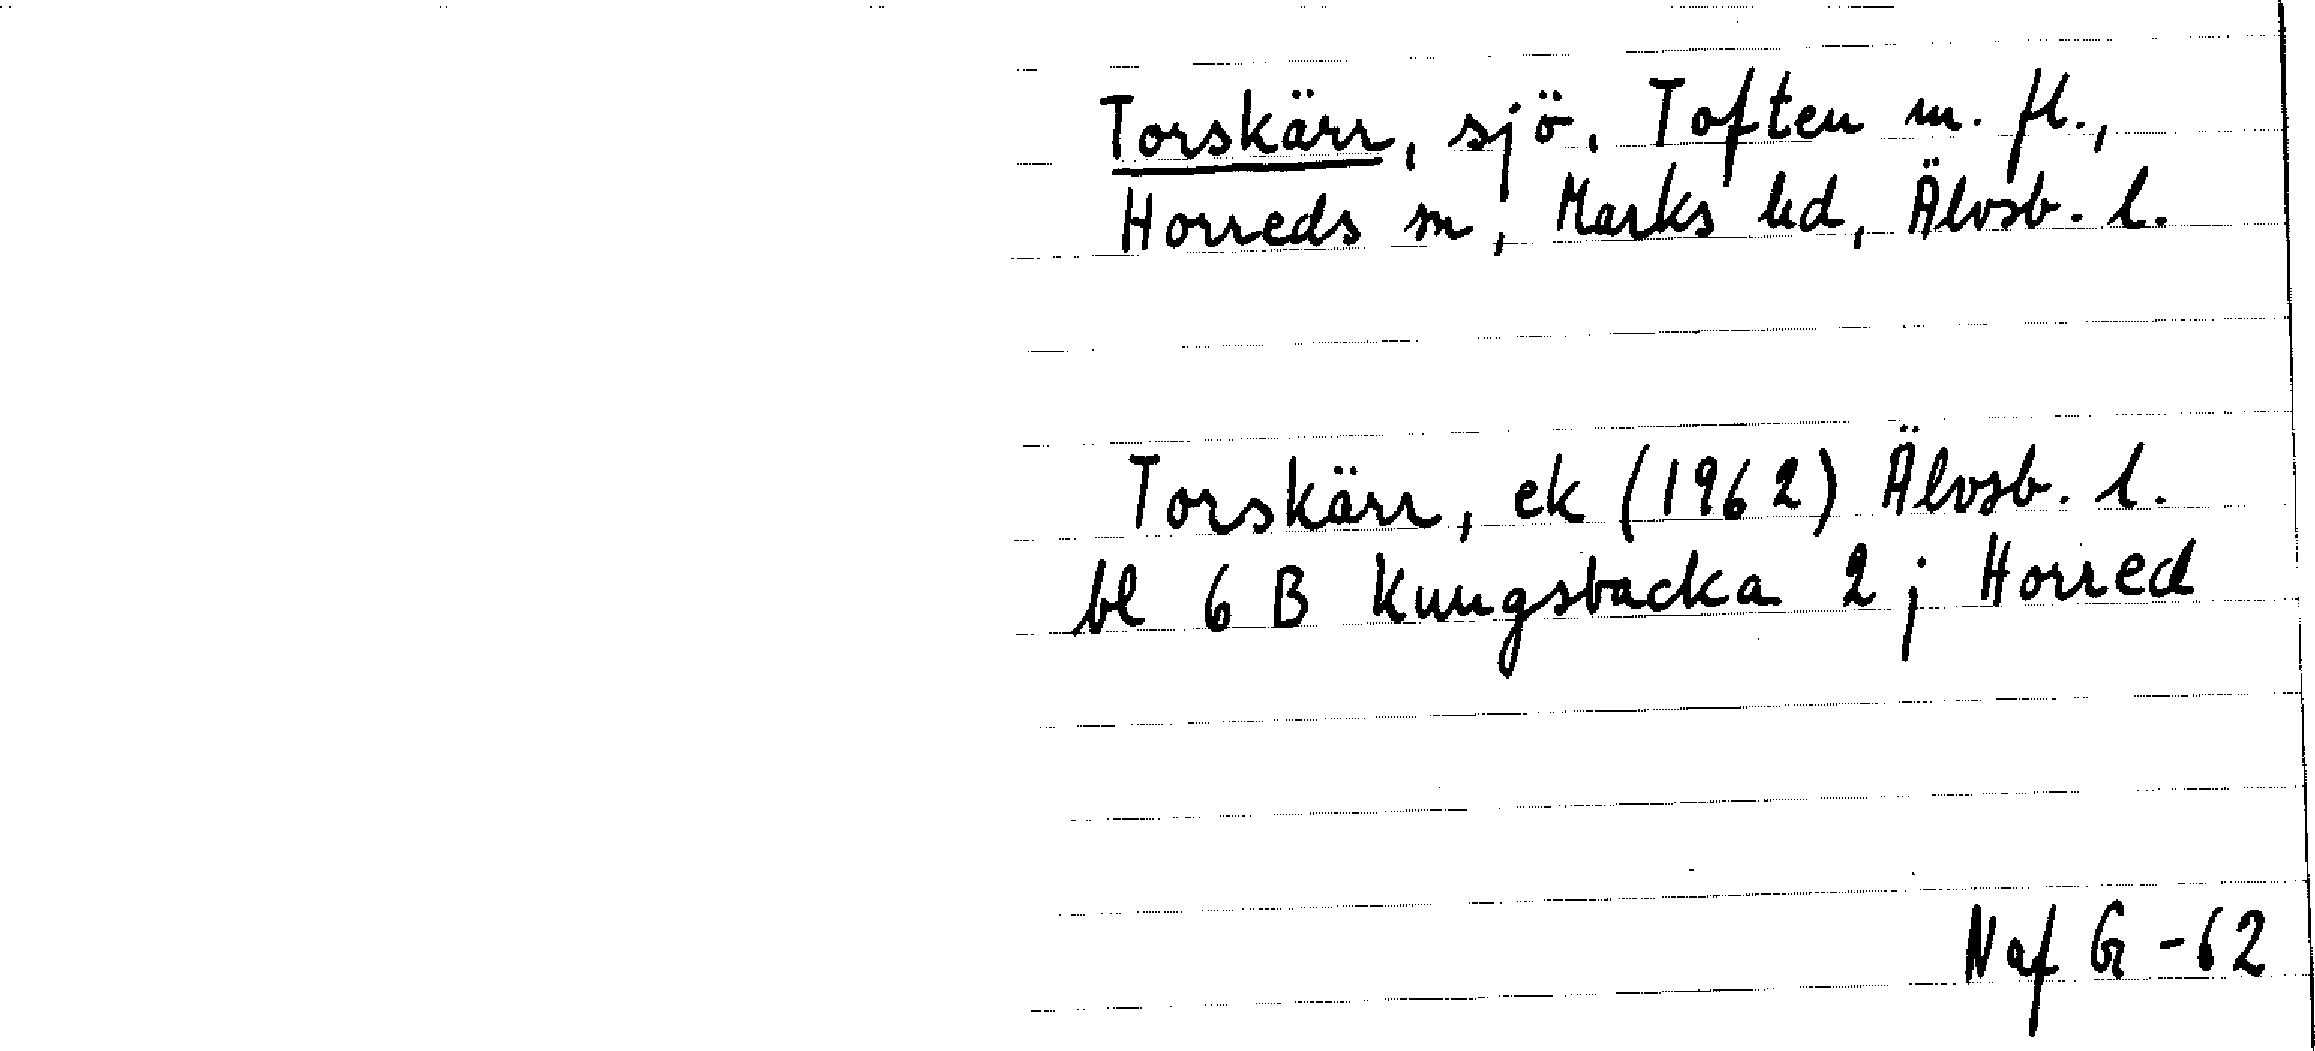 Torskärr, sjö, Toften m. fl.,
Horreds sn, Marks hd, Älvsb. l.
Torskärr, ek (1962) Älvsb. l.
bl 6 B Kungsbacka 2 j Horred
Naf G -62